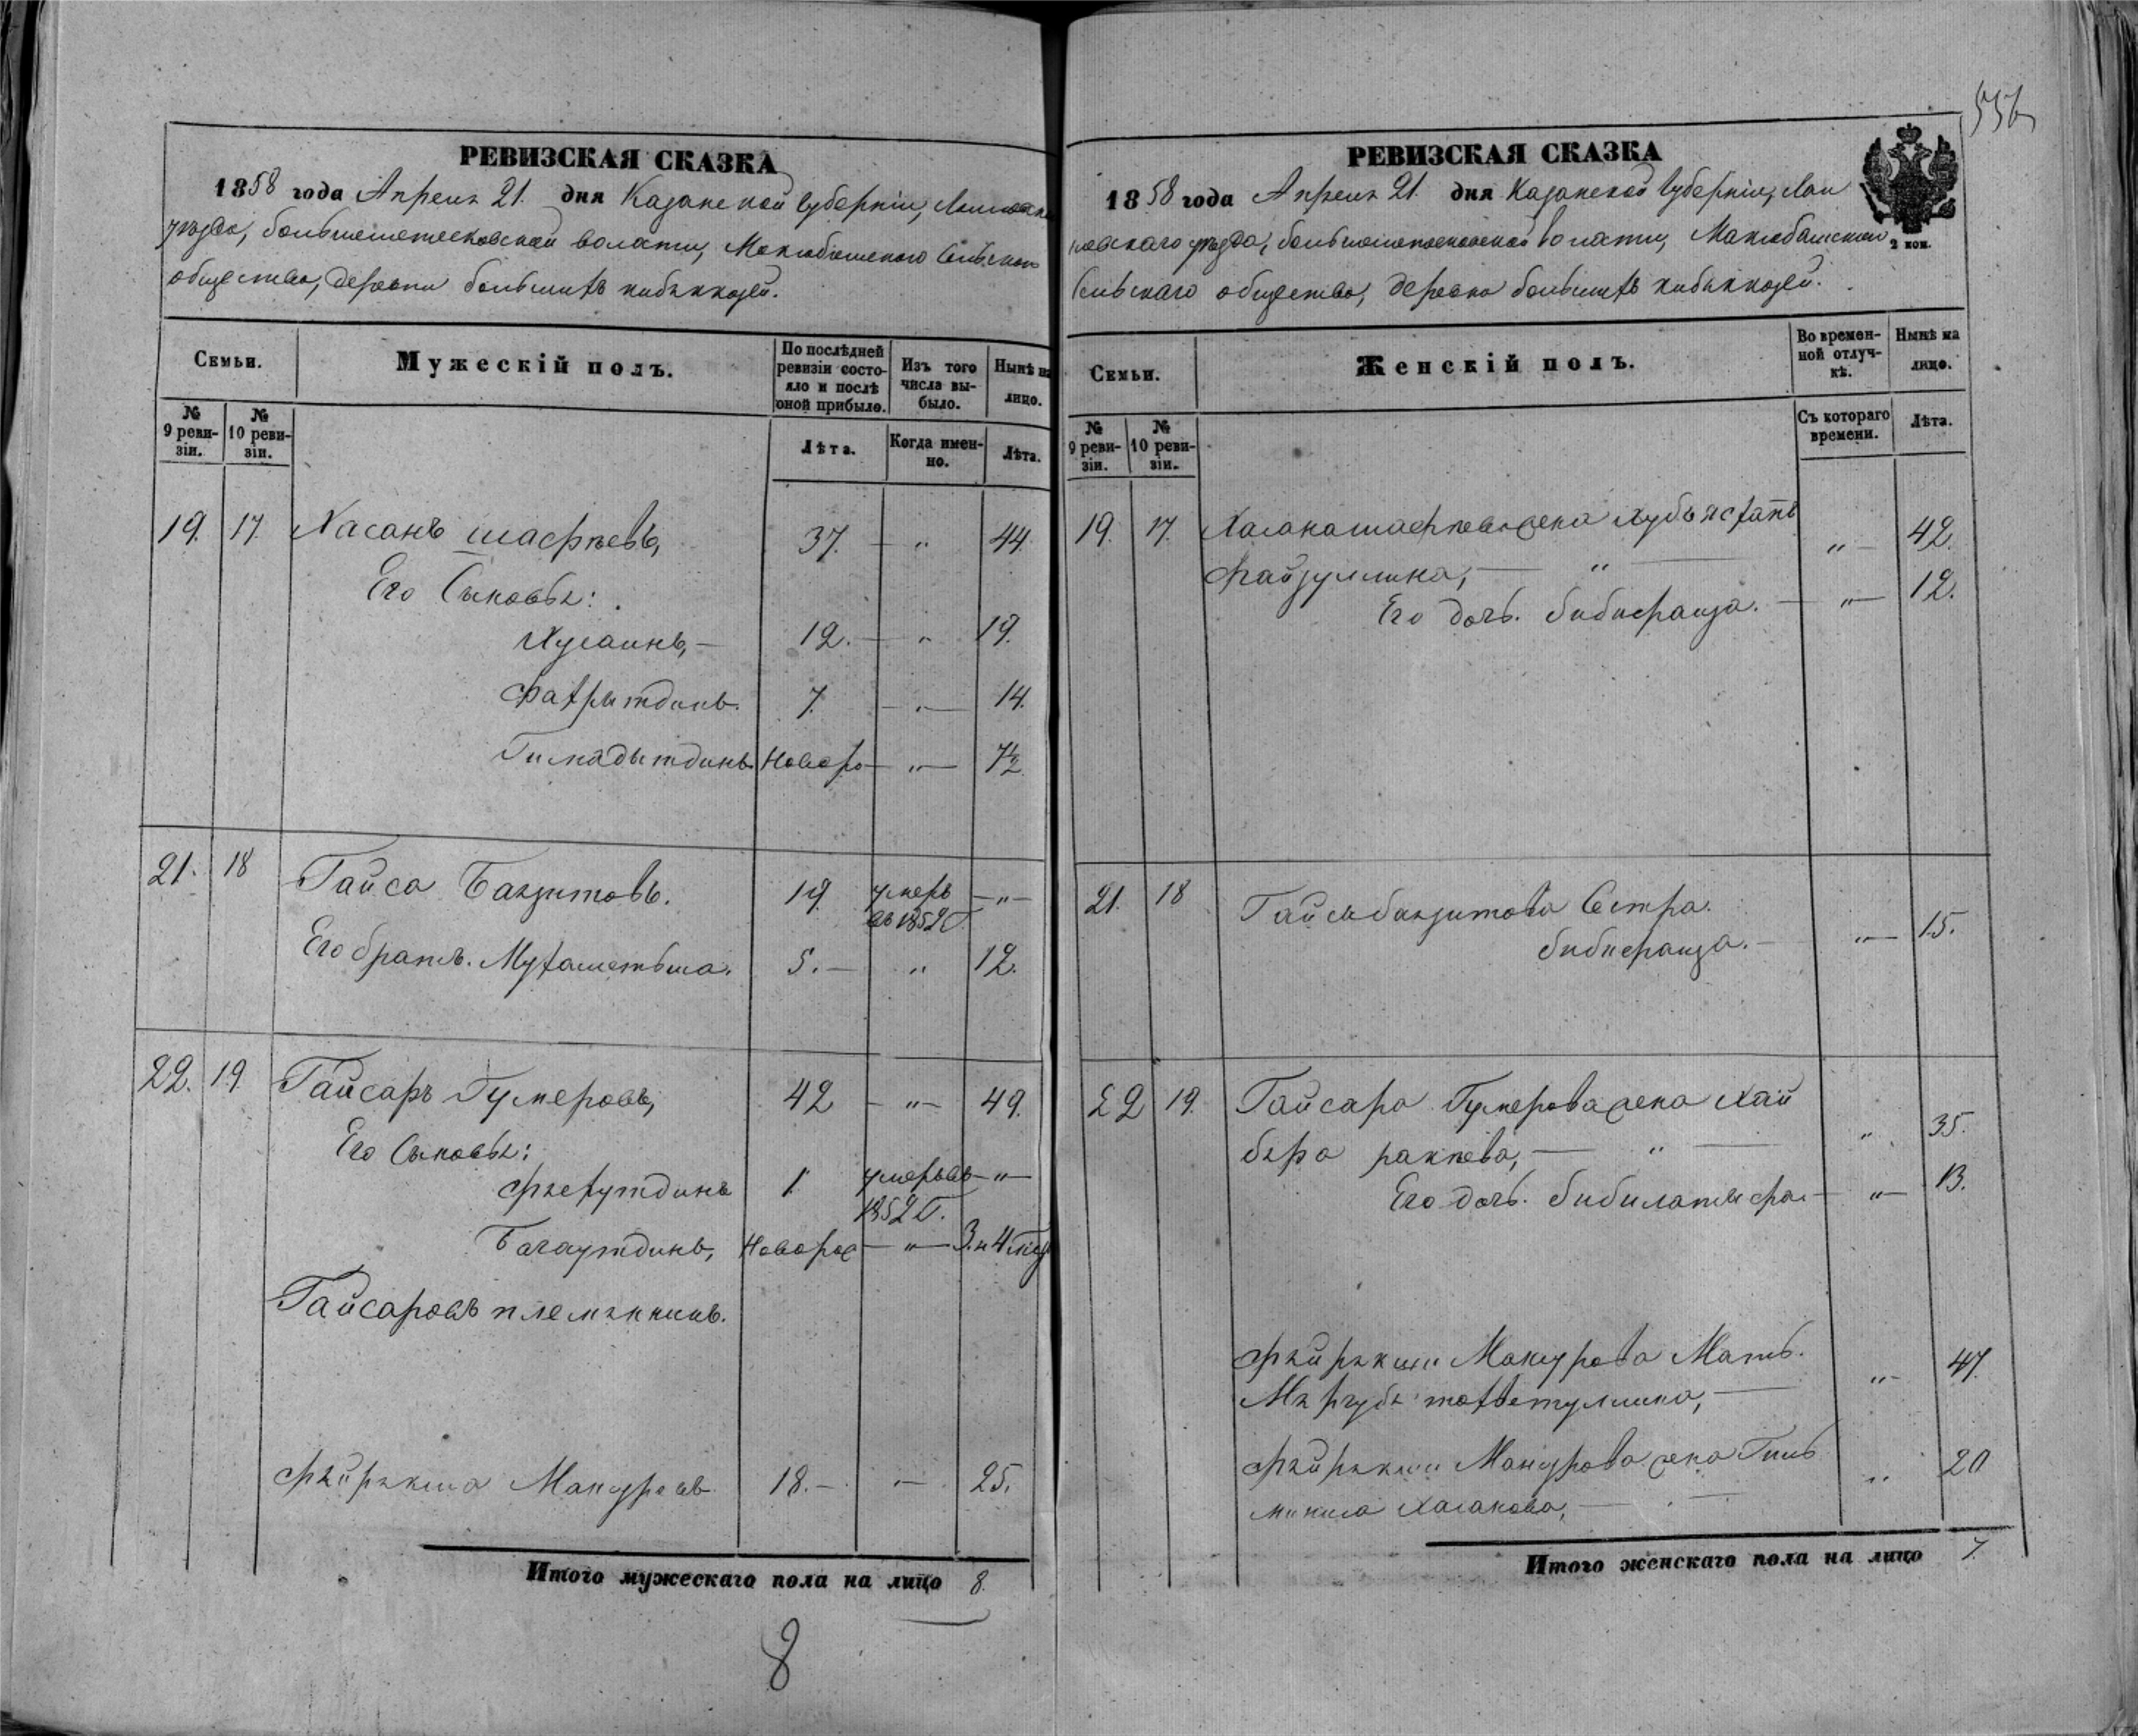 556
РЕВИЗСКАЯ СКАЗКА
1858 года Апреля 21. дня Казанской губерніи, Лаишевск
уезда, большеметесковской волости, Маклюбашскаго Сельскаго
общества, деревни большихъ кибякозей.
Семьи.
Мужескій полъ.
По послѣдней ревизіи состояло и послѣ оной прибыло.
Изъ того числа выбыло.
Нынѣ на лицо.
№ 9 ревизіи.
№ 10 ревизіи.
Лѣта.
Когда именно.
Лѣта.
19. 17. Хасанъ шафѣевъ, 37. — „ 44.
Его Сыновья:
Хусаинъ, — 12. — „ 19.
Фахрытдинъ. 7. — „ — 14.
Гимадытдинъ. Новоро — „ — 7½
21. 18 Гайса Бакзитовъ. 19. умеръ — „ —
въ 1852 Г.
Его братъ. Мухаметьша. 5. — „ 12.
22. 19. Гайсаръ Гумеровъ, 42 — „ — 49.
Его Сыновья:
Фяхрутдинъ 1. умеръ въ — „ —
1852 Г.
Багаутдинъ, Новорож — „ — 3. и 4 мес
Гайсаровъ племянникъ.
Фяйрякша Мансуровъ 18. — „ — 25.
Итого мужескаго пола на лицо 8.
8
РЕВИЗСКАЯ СКАЗКА
1858 года Апреля 21. дня Казанской губерніи, Лаи
шевскаго уезда, большеметесковской волости, Маклюбашскаго
Сельскаго общества, деревни большихъ кибякозей.
2 коп.
Семьи.
Женскій полъ.
Во временной отлучкѣ.
Нынѣ на лицо.
№ 9 ревизіи.
№ 10 ревизіи.
Съ котораго времени.
Лѣта.
19. 17. Хасана шафѣева жена „ — 42.
Файзуллина, — „ —
Его дочь. бибифаиза. — „ — 12.
21. 18 Гайсы бакзитова Сестра.
бибифаиза. — „ — 15.
22 19. Гайсара Гумерова жена Хай
бяра ракаева, — „ — „ 35.
Его дочь. — „ — 13.
Фяйрякши Мансурова Мать. „ — 47.
Фяйрякши Мансурова жена Гиль „ 20
Хасанова, —
Итого женскаго пола на лицо 7.